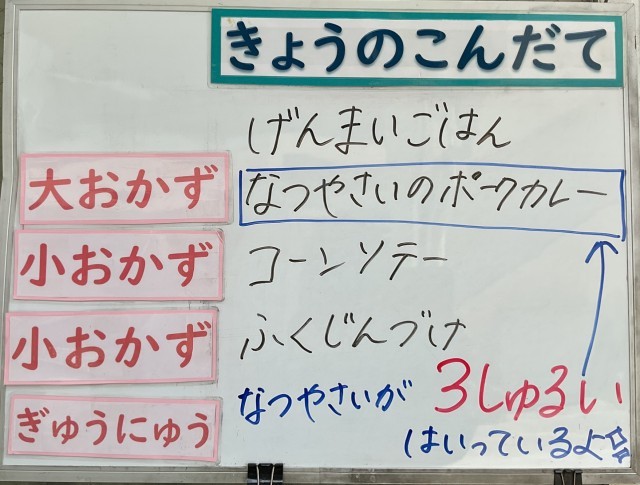 きょうのこんだて
げんまいごはん
大おかず なつやさいのポークカレー
小おかず コーンソテー
小おかず ふくじんづけ
ぎゅうにゅう
なつやさいが 3しゅるい
はいっているよ